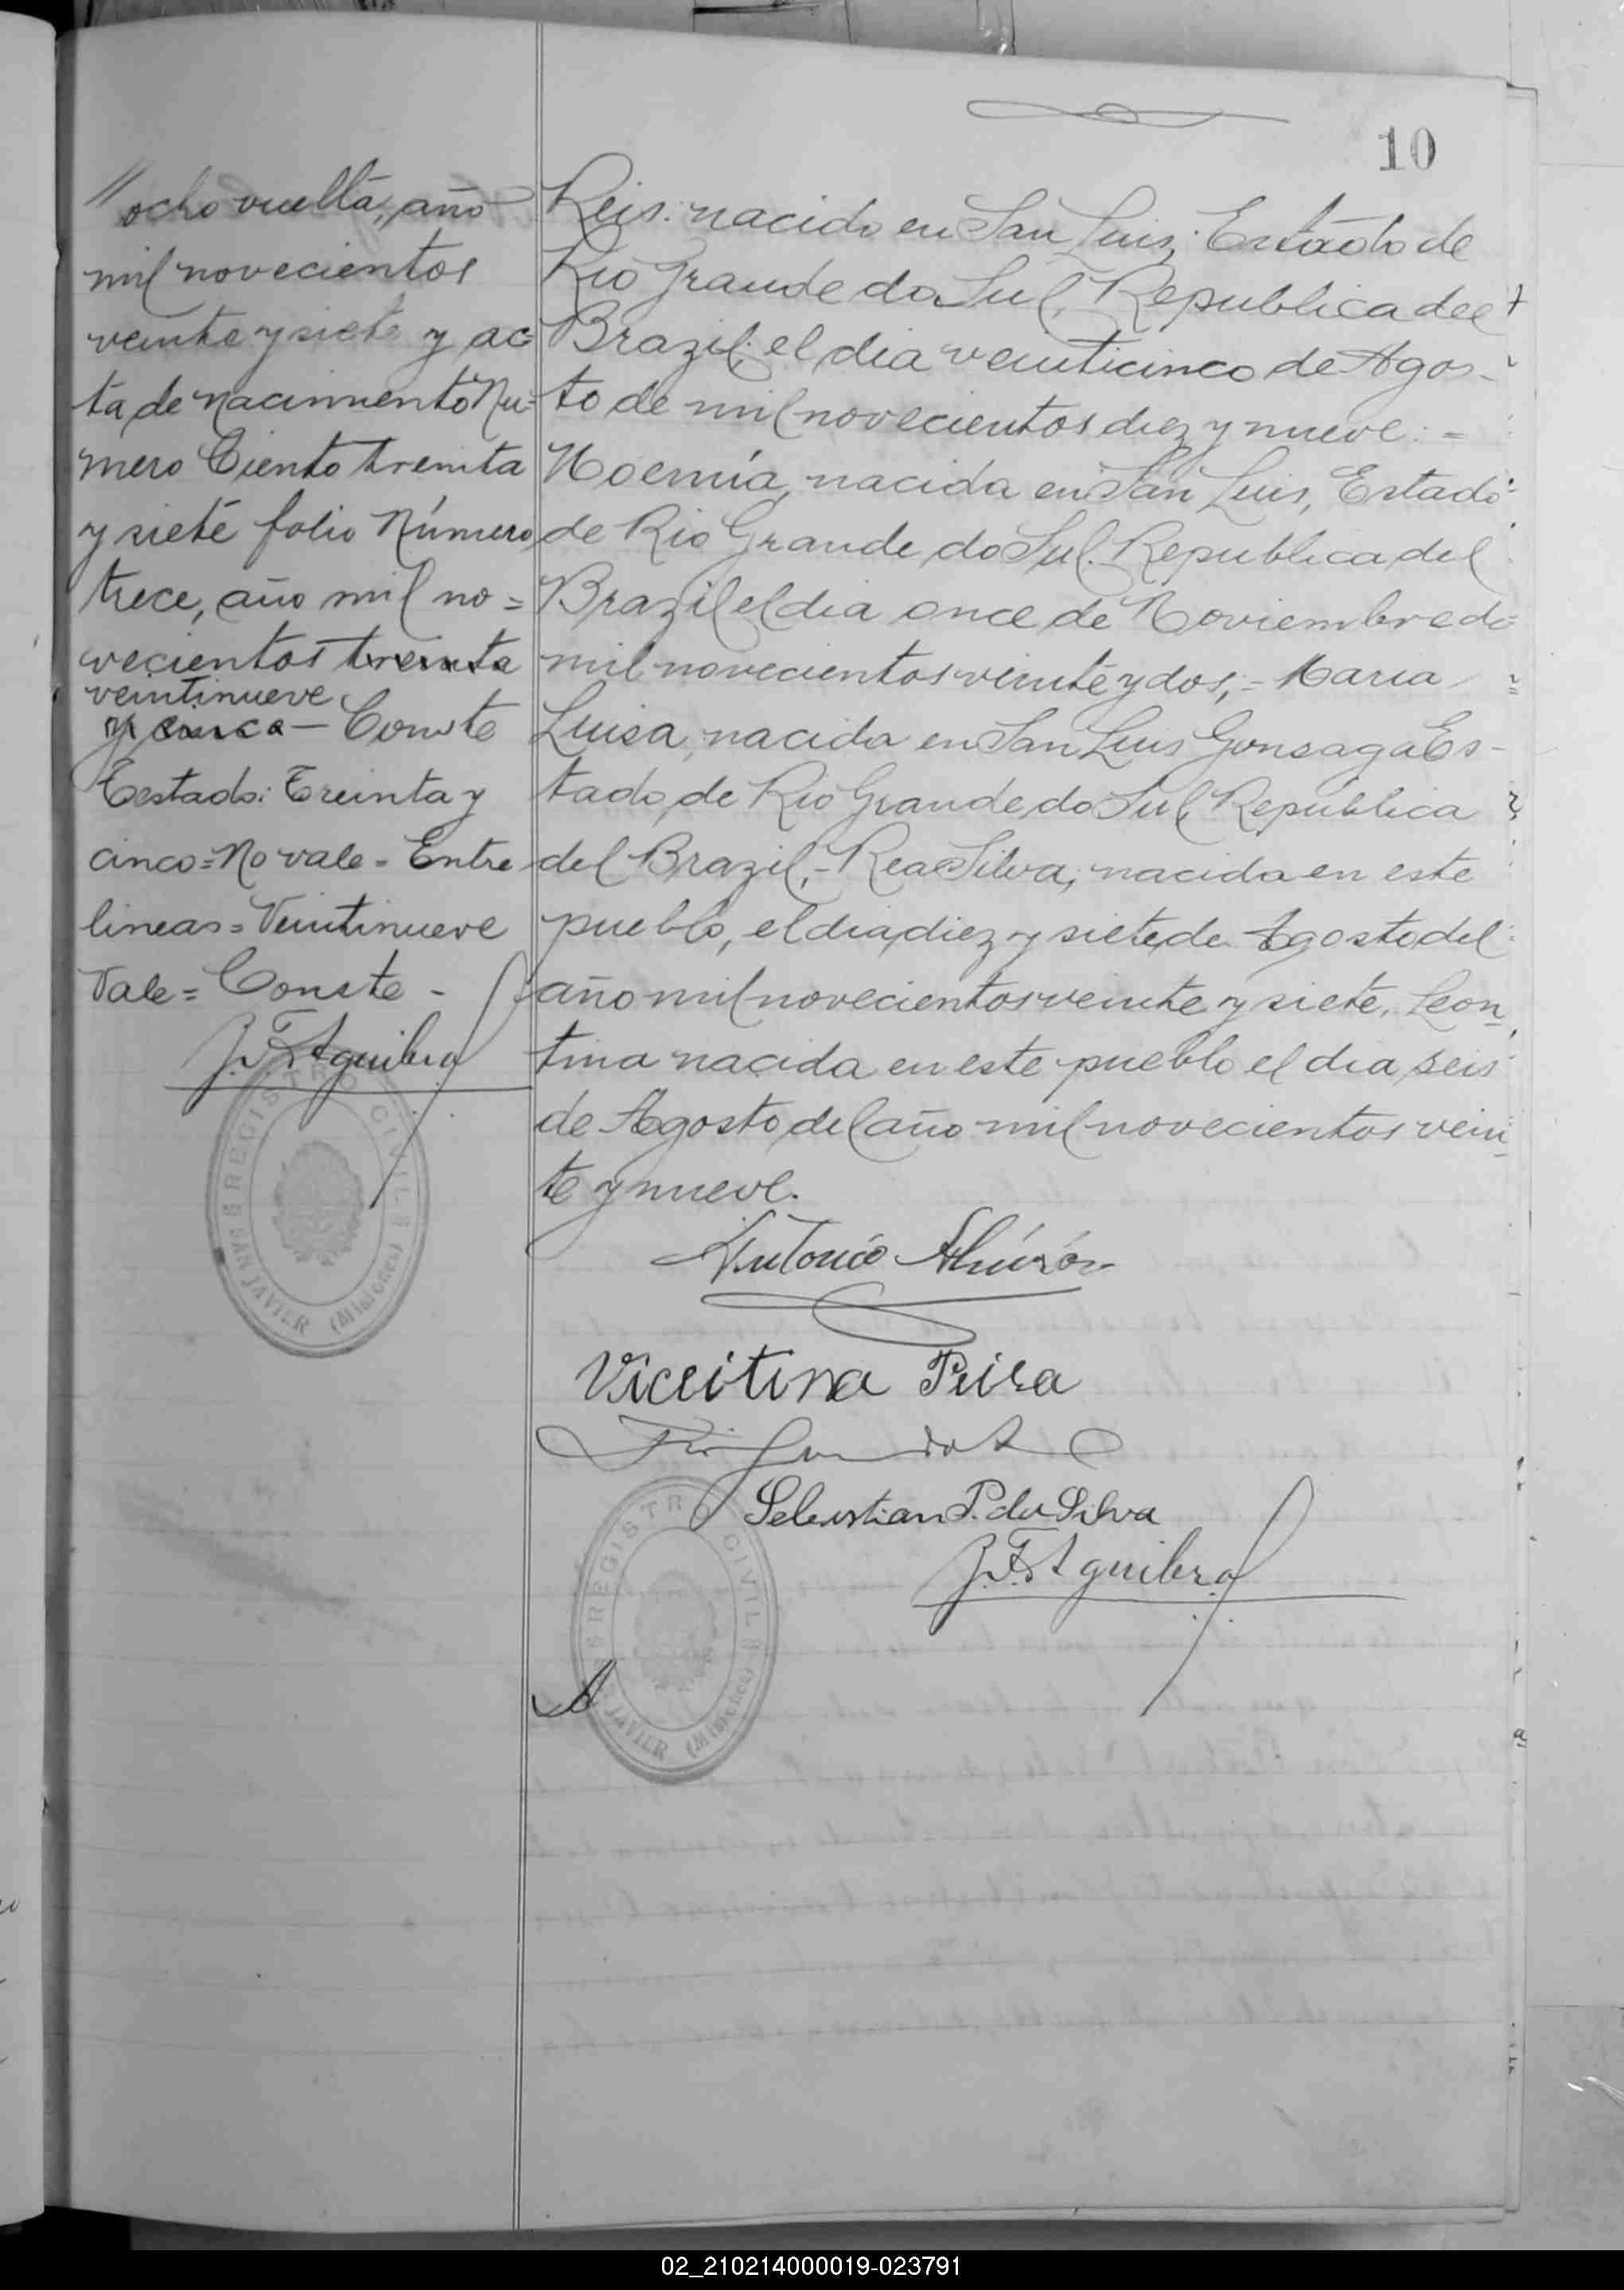 10
// ocho vuelta, año
mil novecientos
veinte y siete y ac=
ta de nacimiento Nu=
mero Ciento treinta
y siete folio Número
trece, año mil no=
vecientos treinta
veintinueve
y cinco - Conste
Testado: Treinta y
cinco = No vale = Entre
lineas = Veintinueve
Vale = Conste -
J. F. Aguilera
REGISTRO CIVIL
SAN JAVIER (Misiones)
Reis: nacido en San Luis, Estado de
Rio Grande do Sul, Republica del
Brazil; el dia veinticinco de Agos-
to de mil novecientos diez y nueve: =
Noemía, nacida en San Luis, Estado
de Rio Grande do Sul. Republica del
Brazil el dia once de Noviembre de
mil novecientos veinte y dos; = Maria
Luisa, nacida en San Luis Gonsaga Es-
tado, de Rio Grande do Sul, República
del Brazil, - Rea Silva, nacida en este
pueblo, el dia, diez y siete, de Agosto del
año mil novecientos veinte y siete, Leon
tina nacida en este pueblo el dia seis
de Agosto del año mil novecientos vein
te y nueve.
Antonio
Viceitina Peira
Sebastian P. da Silva
J. F. Aguilera
REGISTRO CIVIL
JAVIER (Misiones)
02_210214000019-023791